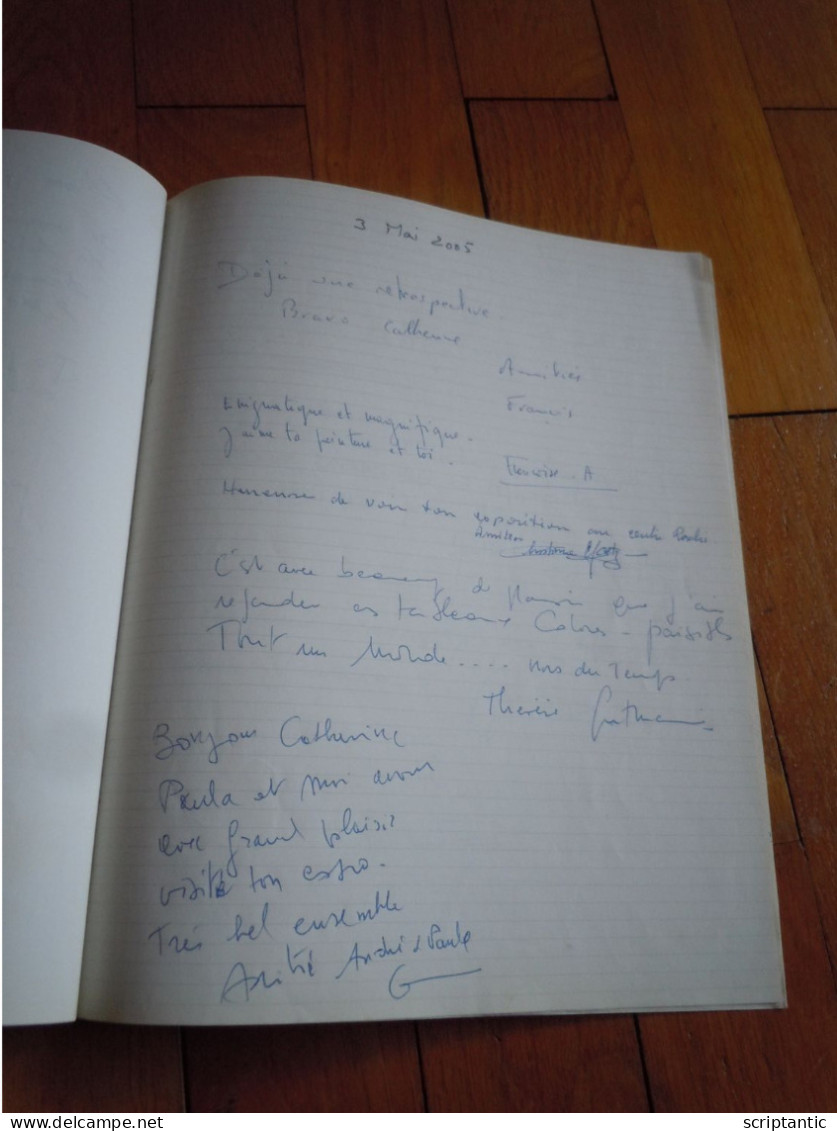 3 Mai 2005
Déjà une retrospective.
Bravo Catherine
Amitiés
Francis
Enigmatique et magnifique.
J'aime ta peinture et toi.
Françoise. A
Heureuse de voir ton exposition au centre
Amitiés
C'est avec beaucoup de plaisir que j'ai
regarder ces tableaux Colorés - paisibles
Tout un Monde.... hors du Temps
Thérèse
Bonjour Catherine
Paula et moi avons
avec grand plaisir
visité ton expo.
Très bel ensemble
Amitié André & Paula
scriptantic